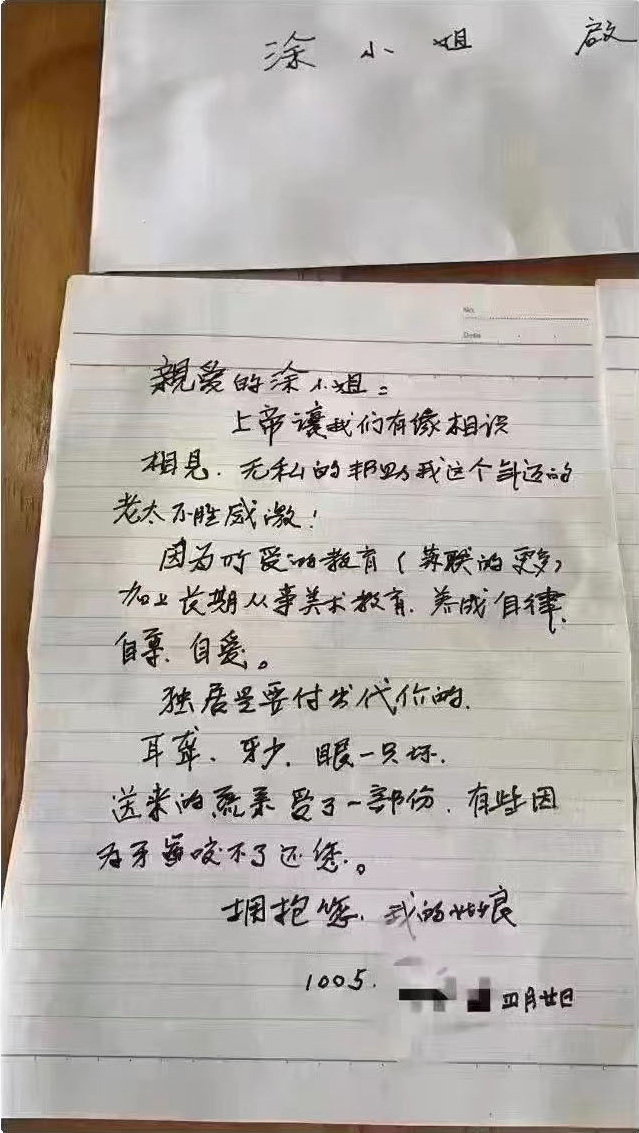 涂小姐 啟
No.
Date
親爱的涂小姐：
上帝讓我们有缘相识
相見．无私的邦助我这个年迈的
老太不胜感激！
因为所受的教育（苏联的更多）
加上长期从事美术教育．养成自律、
自尊、自爱。
独居是要付出代价的．
耳聋、牙少、眼一只坏．
送来的蔬菜受了一部份．有些因
为牙 咬不了还您。
拥抱您．我的姑娘
1005．
四月廿日